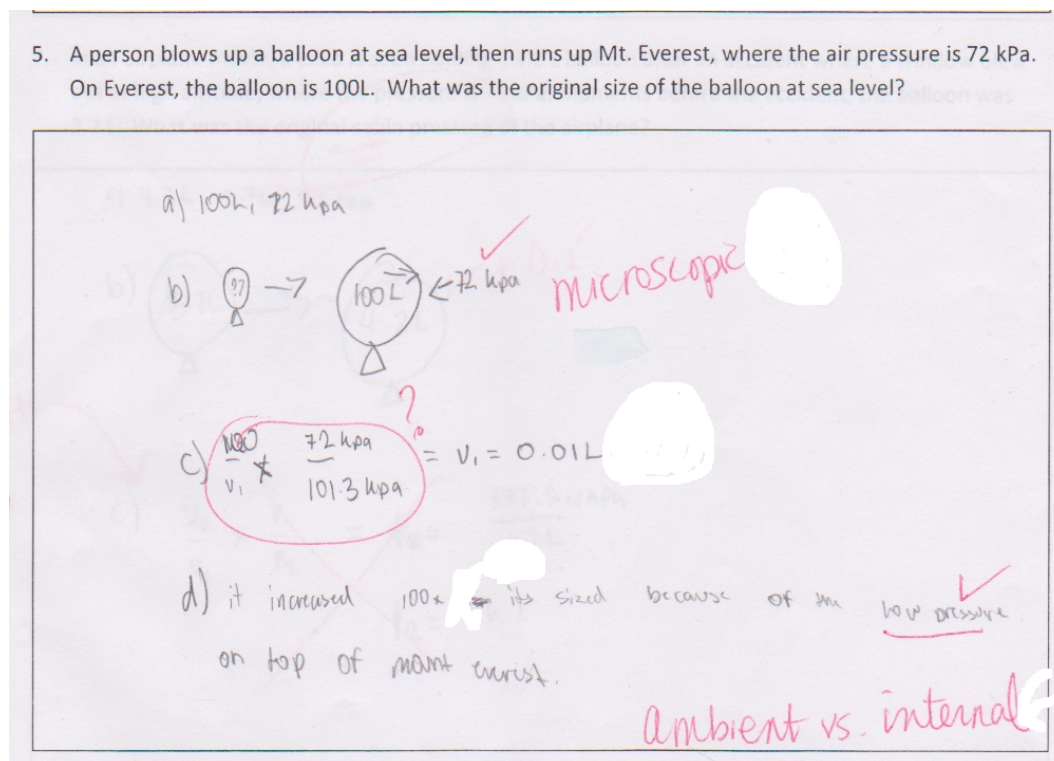 5. A person blows up a balloon at sea level, then runs up Mt. Everest, where the air pressure is 72 kPa.
On Everest, the balloon is 100L. What was the original size of the balloon at sea level?
a) 100L, 72 kpa
b) ?? → 100L ← 72 kpa microscopic
?
c) 100 72 kpa
V₁ * 101.3 kpa = V₁ = 0.01L
d) it increased 100x its sized because of the low pressure
on top of mount everist.
ambient vs. internal